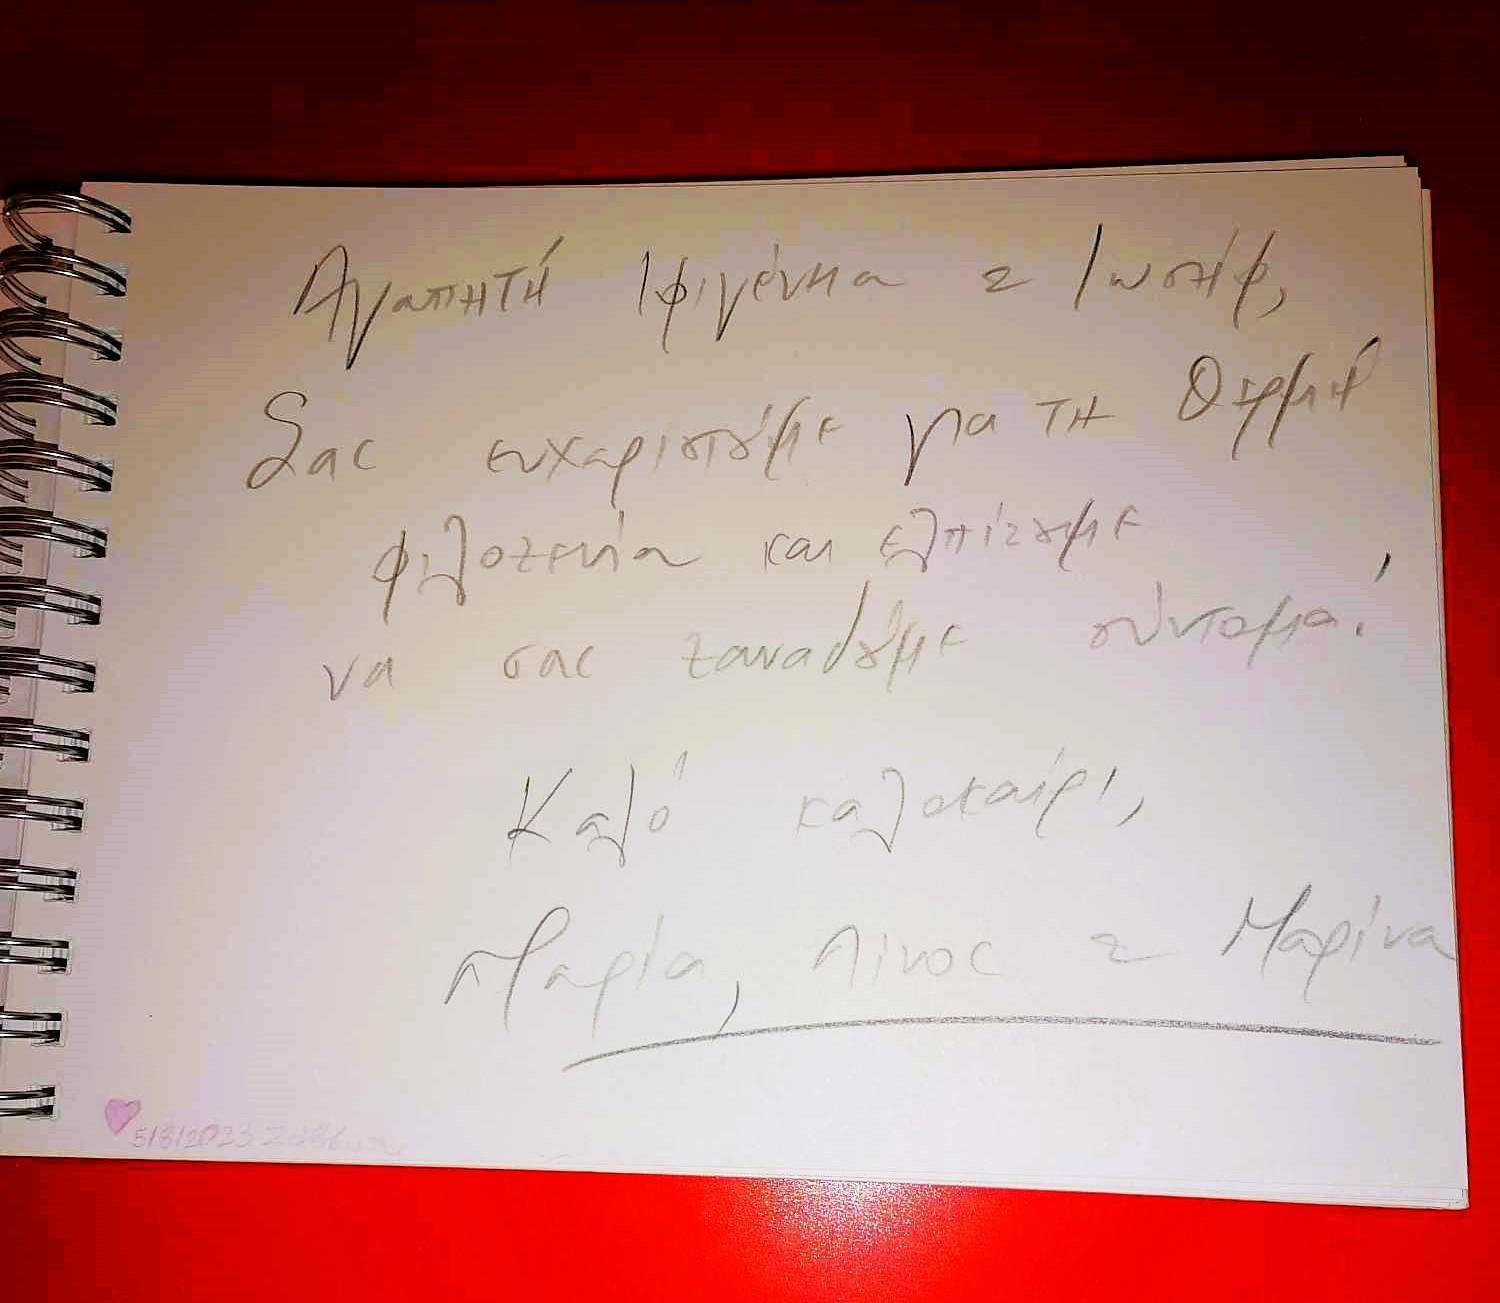 Αγαπητή Ιφιγένεια & Ιωσήφ,
Σας ευχαριστούμε για τη θερμή
φιλοξενία και ελπίζουμε
να σας ξαναδούμε σύντομα!
Καλό καλοκαίρι,
Μαρία, Λίνος & Μαρίνα
5/8/2023 Σάββατο